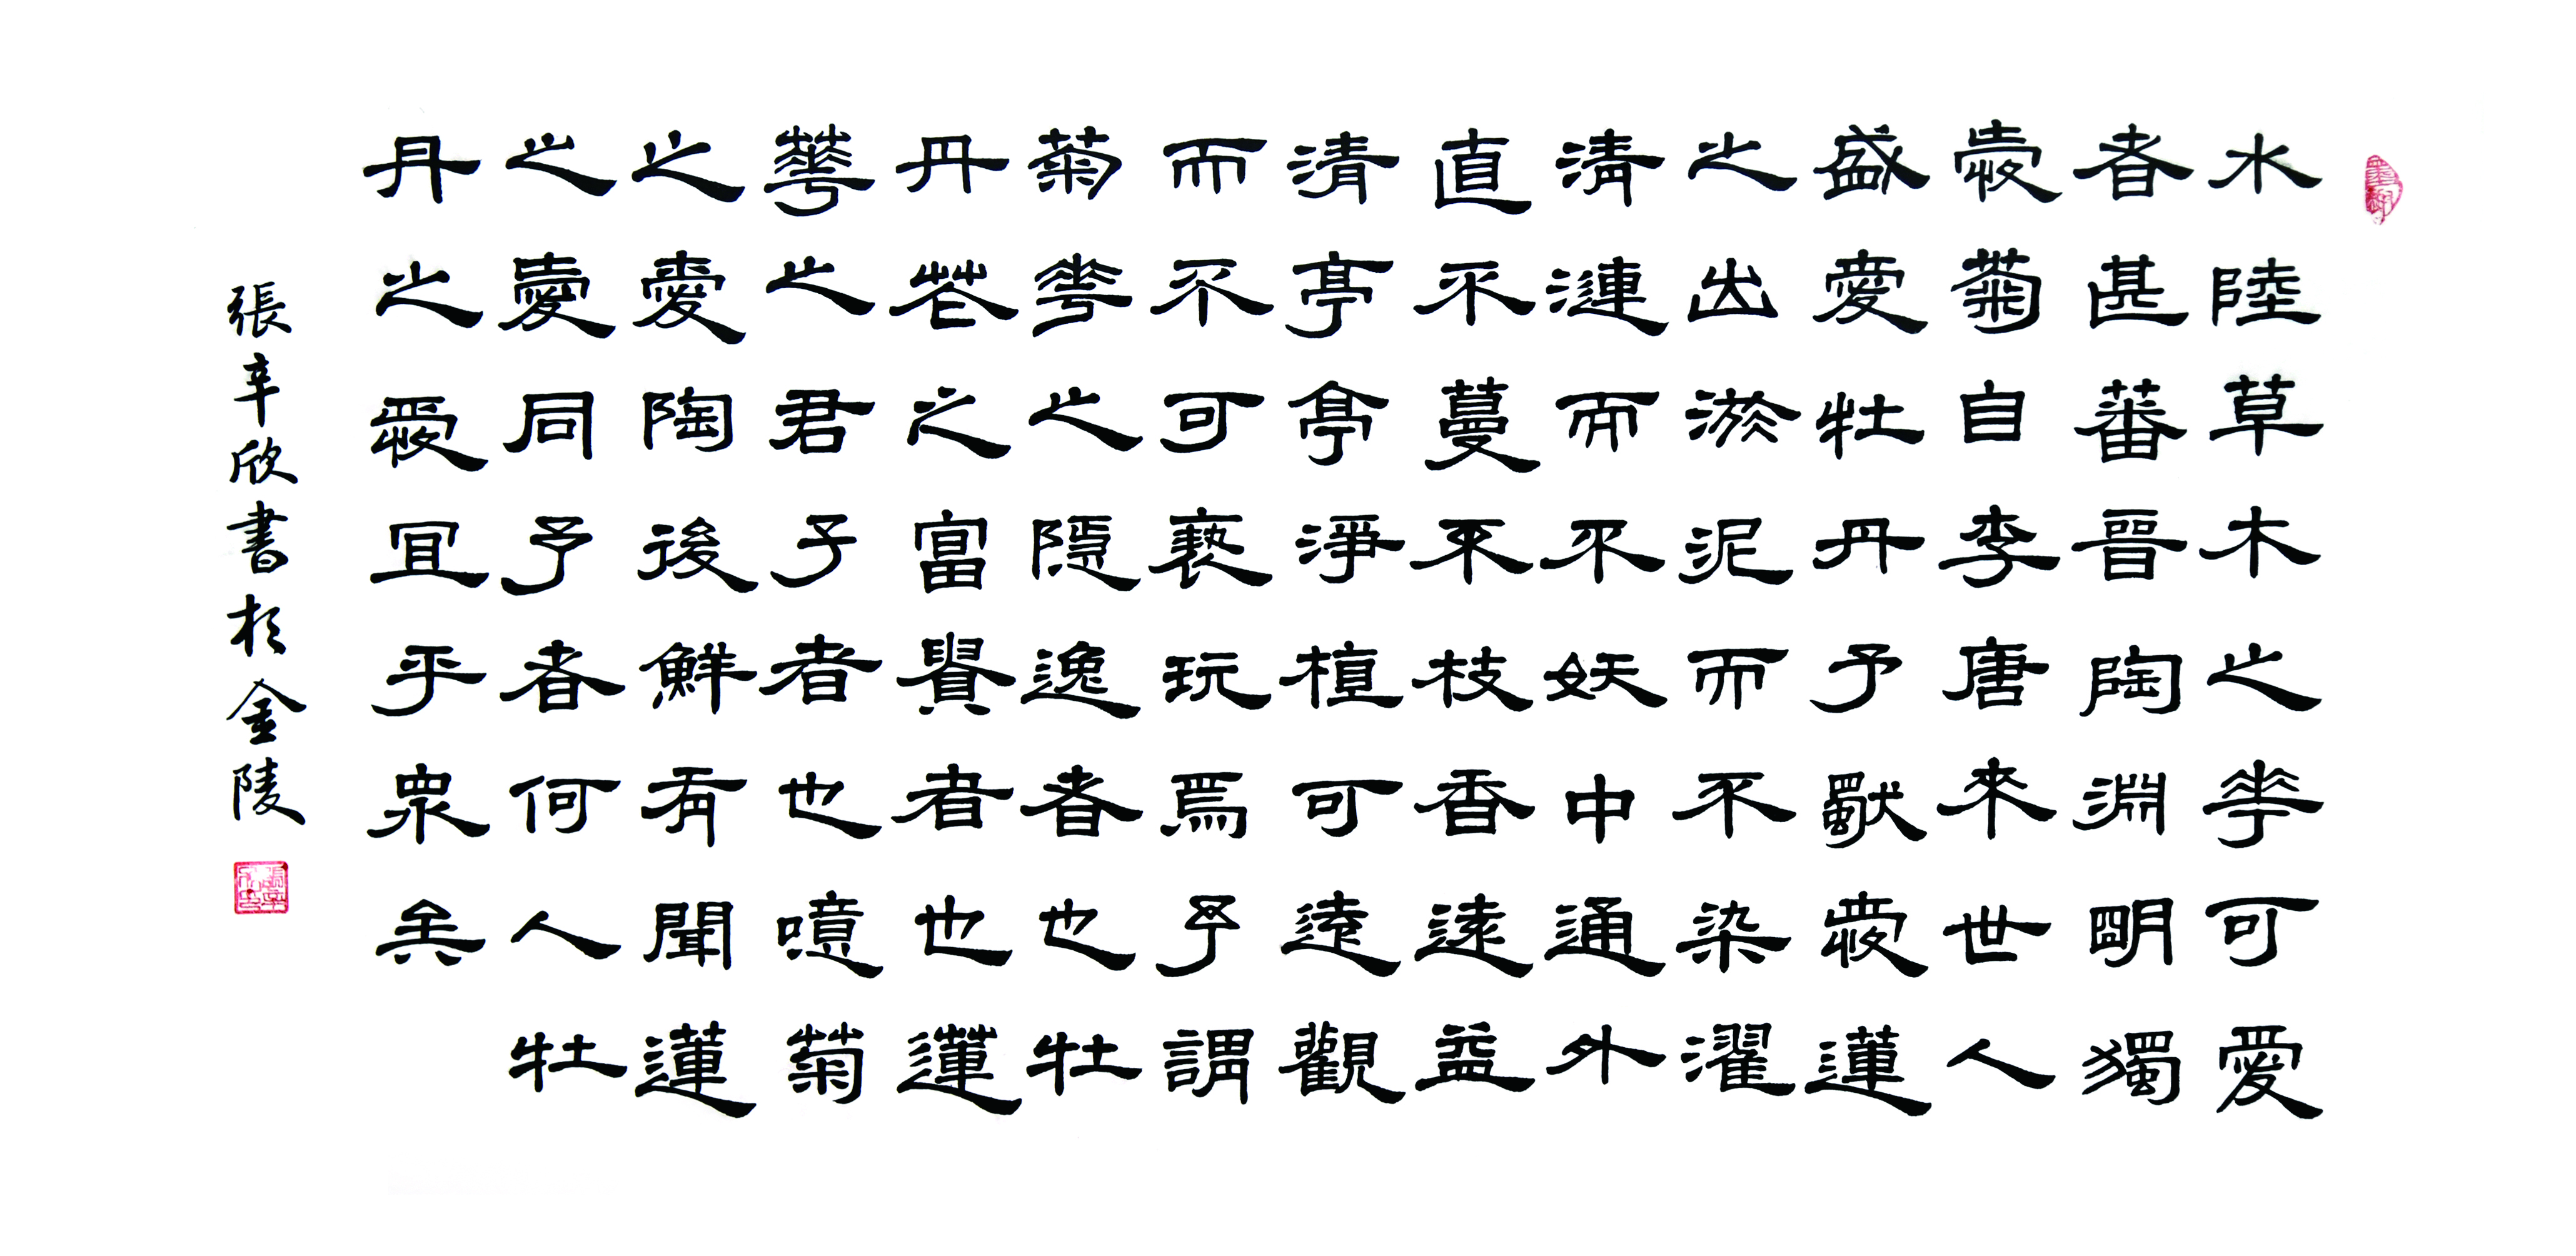 水陸草木之華可愛
者甚蕃晉陶淵明獨
愛菊自李唐來世人
盛愛牡丹予獨愛蓮
之出淤泥而不染濯
清漣而不妖中通外
直不蔓不枝香遠益
清亭亭淨植可遠觀
而不可褻玩焉予謂
菊華之隱逸者也牡
丹花之富貴者也蓮
華之君子者也噫菊
之愛陶後鮮有聞蓮
之愛同予者何人牡
丹之愛宜乎眾矣
張辛欣書於金陵